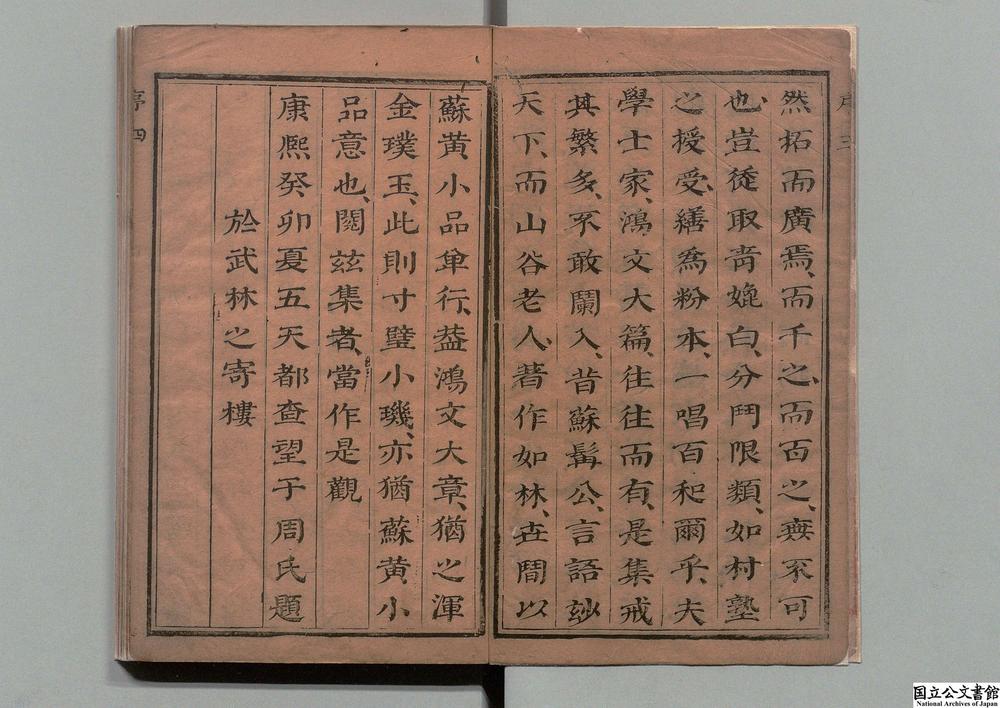 然拓而廣焉、而千之、而百之、無不可
也、豈從取青媲白、分門限類、如村塾
之授受、繕為粉本、一唱百和爾乎、夫
學士家、鴻文大篇、往往而有、是集、戒
其繁多、不敢闌入、昔蘇髯公、言語玅
天下、而山谷老人、著作如林、世間以
蘇黃小品單行、葢鴻文大章、猶之渾
金璞玉、此則寸璧小璣、亦猶蘇黃小
品意也、閱茲集者、當作是觀
康熙癸卯夏五天都查望于周氏題
於武林之寄樓
序四
国立公文書館
National Archives of Japan